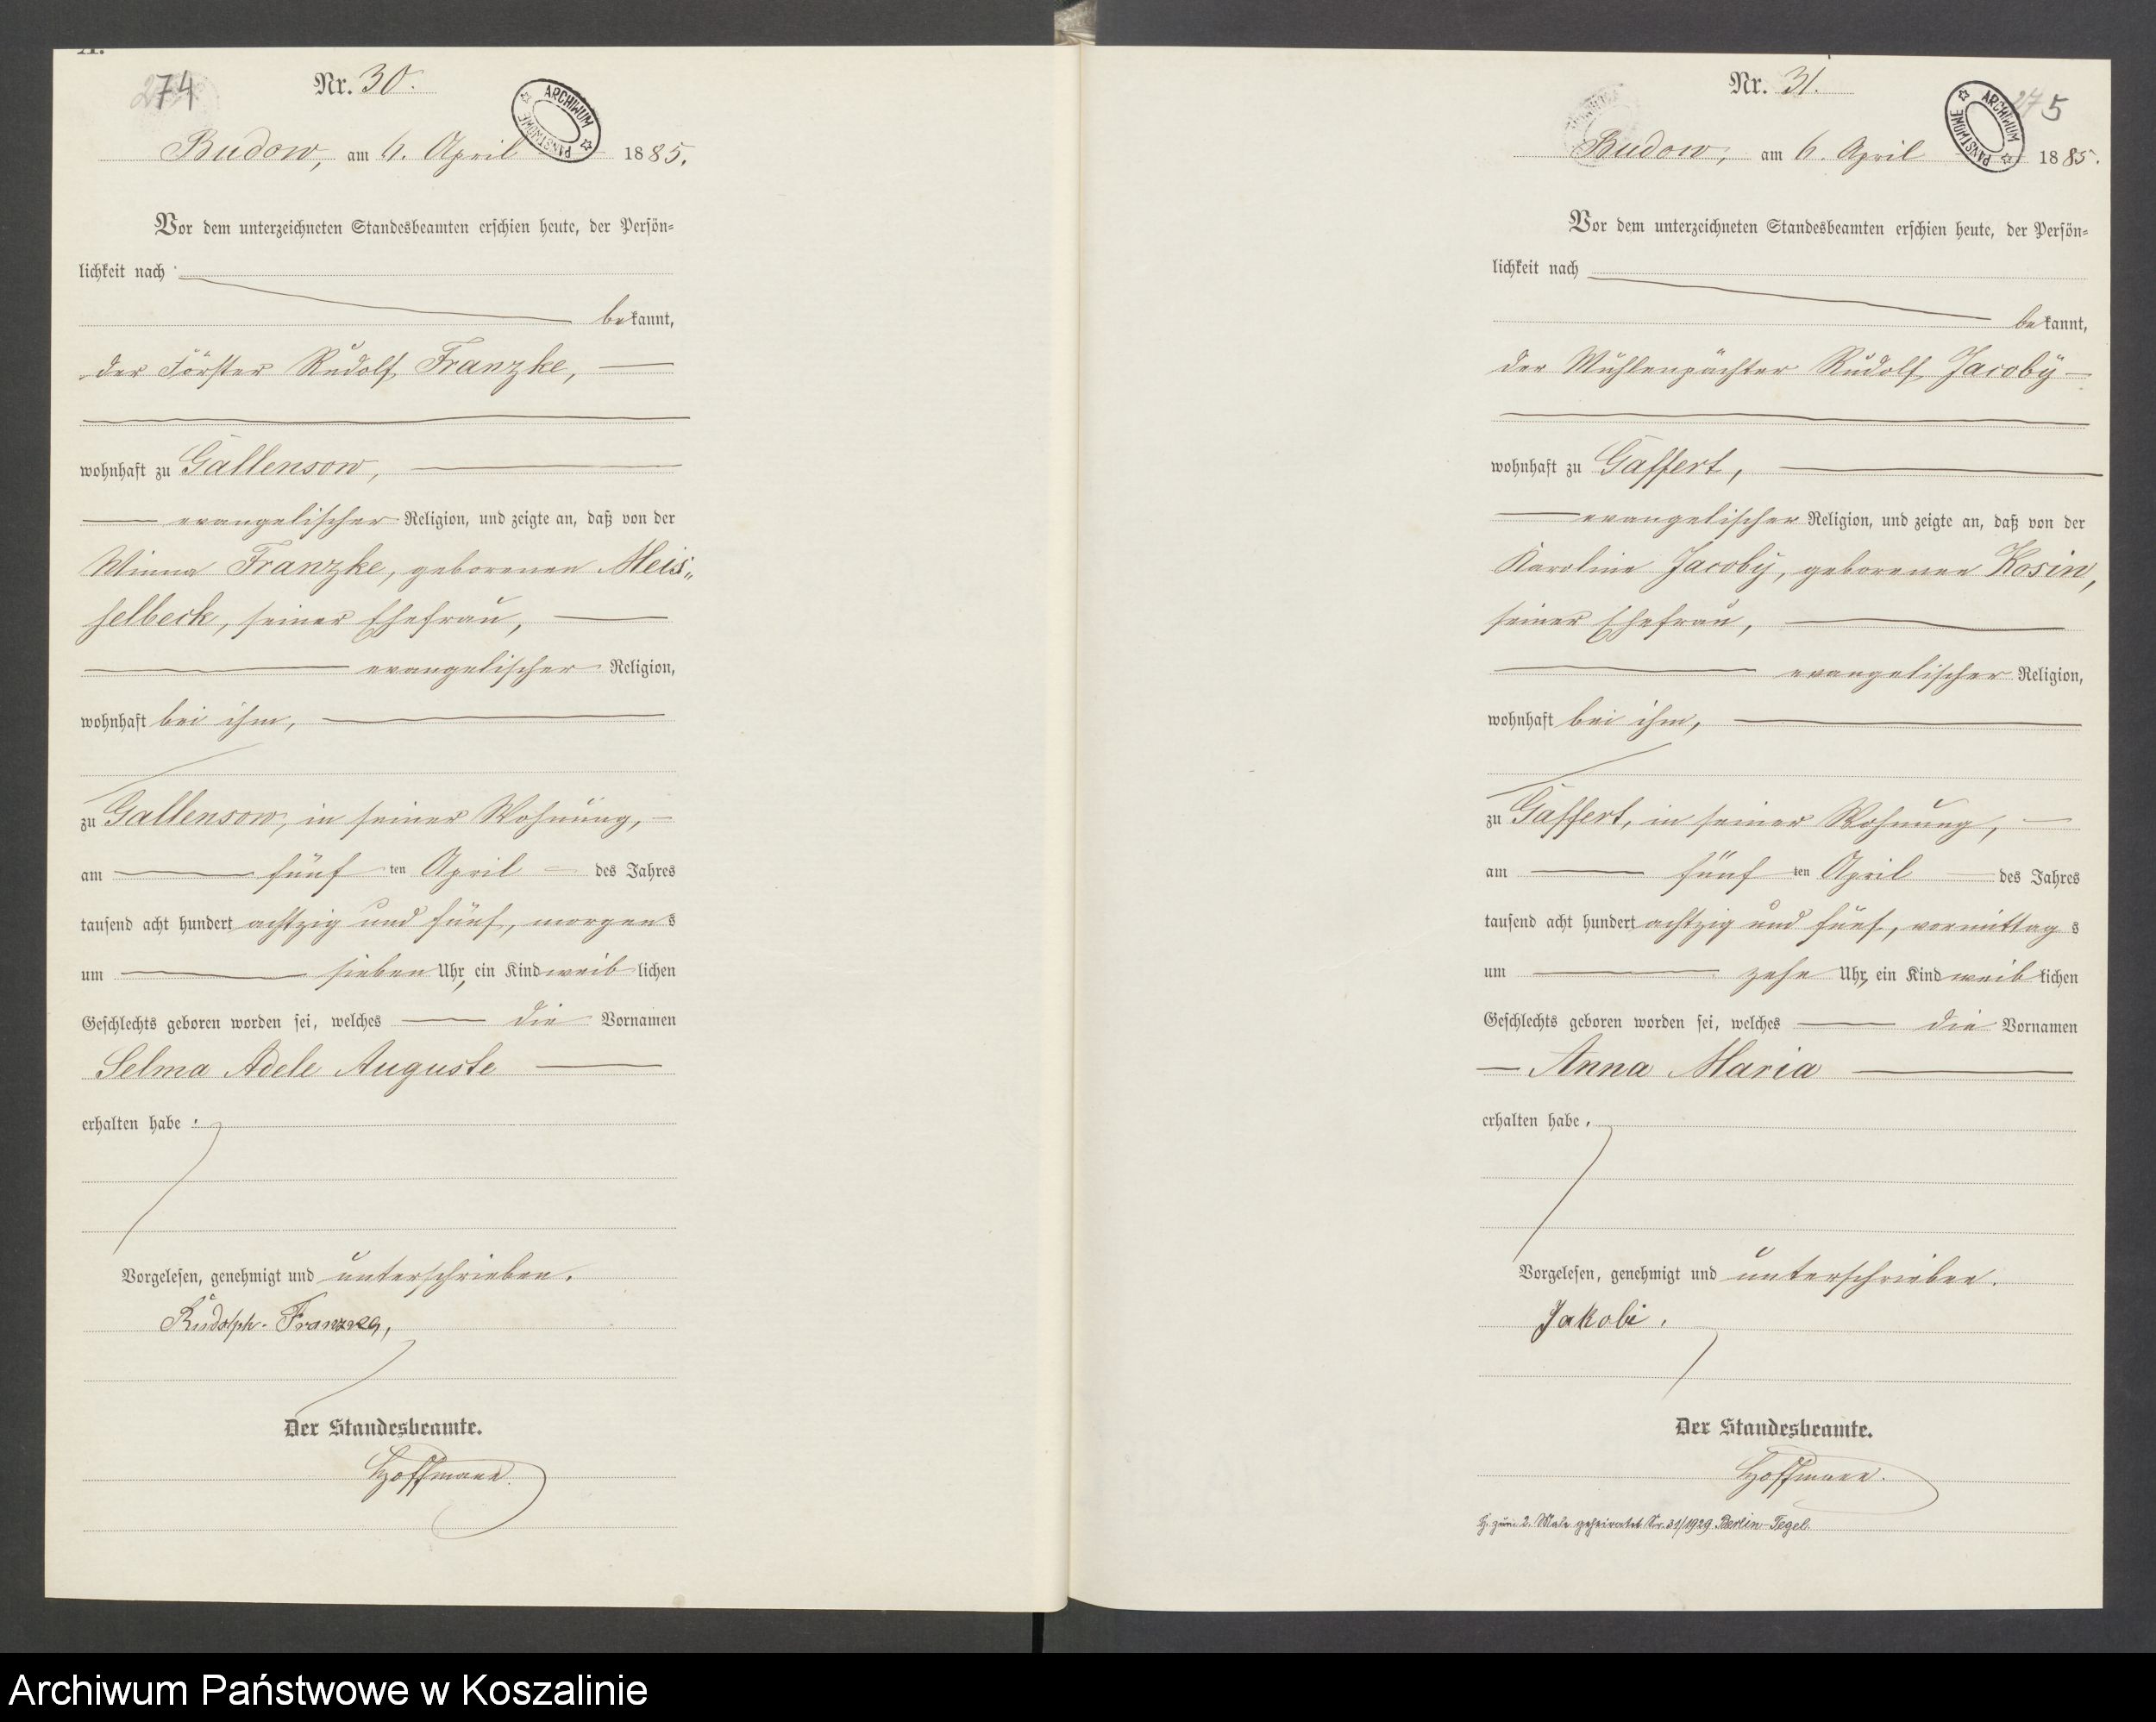 A.
74
Nr. 30.
ARCHIWUM PAŃSTWOWE
Budow, am 6. April 1885.
Vor dem unterzeichneten Standesbeamten erschien heute, der Persön-
lichkeit nach
bekannt,
der Förster Rudolf Franzke,
wohnhaft zu Gallensow,
evangelischer Religion, und zeigte an, daß von der
Minna Franzke, geborenen Meis„
selbeck, seiner Ehefrau,
evangelischer Religion,
wohnhaft bei ihm,
zu Gallensow, in seiner Wohnung,
am fünf ten April des Jahres
tausend acht hundert achtzig und fünf, morgens
um sieben Uhr, ein Kind weiblichen
Geschlechts geboren worden sei, welches die Vornamen
Selma Adele Auguste
erhalten habe.
Vorgelesen, genehmigt und unterschrieben.
Rudolph
Der Standesbeamte.
Hoffmann.
Nr. 31.
ARCHIWUM PAŃSTWOWE
5
Budow, am 6. April 1885.
Vor dem unterzeichneten Standesbeamten erschien heute, der Persön-
lichkeit nach
bekannt,
der Mühlenpächter Rudolf Jacoby
wohnhaft zu Gaffert,
evangelischer Religion, und zeigte an, daß von der
Karoline Jacoby, geborenen Kosin,
seiner Ehefrau,
evangelischer Religion,
wohnhaft bei ihm,
zu Gaffert, in seiner Wohnung,
am fünf ten April des Jahres
tausend acht hundert achtzig und fünf, vormittags
um zehn Uhr, ein Kind weiblichen
Geschlechts geboren worden sei, welches die Vornamen
Anna Maria
erhalten habe.
Vorgelesen, genehmigt und unterschrieben.
Jakobi.
Der Standesbeamte.
Hoffmann.
zum 2. Male geheiratet Nr. 31/1929 Berlin-Tegel.
Archiwum Państwowe w Koszalinie